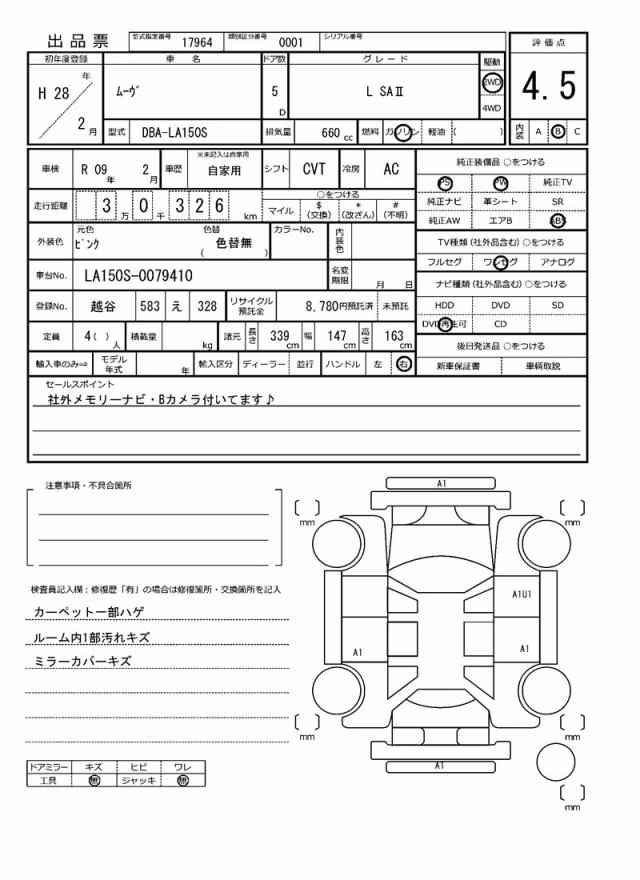 出品票 型式指定番号 17964 類別区分番号 0001 シリアル番号
評価点
初年度登録 車名 ドア数 グレード 駆動
H 28 年 2 月 ﾑｰｳﾞ 5 D L SAⅡ 2WD 4WD
4.5
型式 DBA-LA150S 排気量 660 cc 燃料 ガソリン 軽油 ( ) 内装 A B C
車検 R 09 年 2 月 車歴 ※未記入は自家用 自家用 シフト CVT 冷房 AC
純正装備品 ○をつける
PS PW 純正TV
走行距離 3 万 0 千 3 2 6 km ○をつける
マイル $ (交換) * (改ざん) # (不明)
純正ナビ 革シート SR
純正AW エアB ABS
外装色 元色 ﾋﾟﾝｸ 色替 ( 色替無 ) カラーNo. 内装色
TV種類 (社外品含む) ○をつける
フルセグ ワンセグ アナログ
車台No. LA150S-0079410 名変期限 月 日
ナビ種類 (社外品含む) ○をつける
登録No. 越谷 583 え 328 リサイクル預託金 8,780円預託済 未預託
HDD DVD SD
DVD再生可 CD
定員 4 ( ) 人 積載量 kg 諸元 長さ 339 cm 幅 147 cm 高さ 163 cm
後日発送品 ○をつける
輸入車のみ⇒ モデル年式 年 輸入区分 ディーラー 並行 ハンドル 左 右
新車保証書 車輌取説
セールスポイント
社外メモリーナビ・Bカメラ付いてます♪
注意事項・不具合箇所
A1
mm
mm
検査員記入欄：修復歴「有」の場合は修復箇所・交換箇所を記入
カーペット一部ハゲ
ルーム内1部汚れキズ
ミラーカバーキズ
A1U1
A1
A1
mm
mm
A1
ドアミラー キズ ヒビ ワレ
工具 無 ジャッキ 無
mm